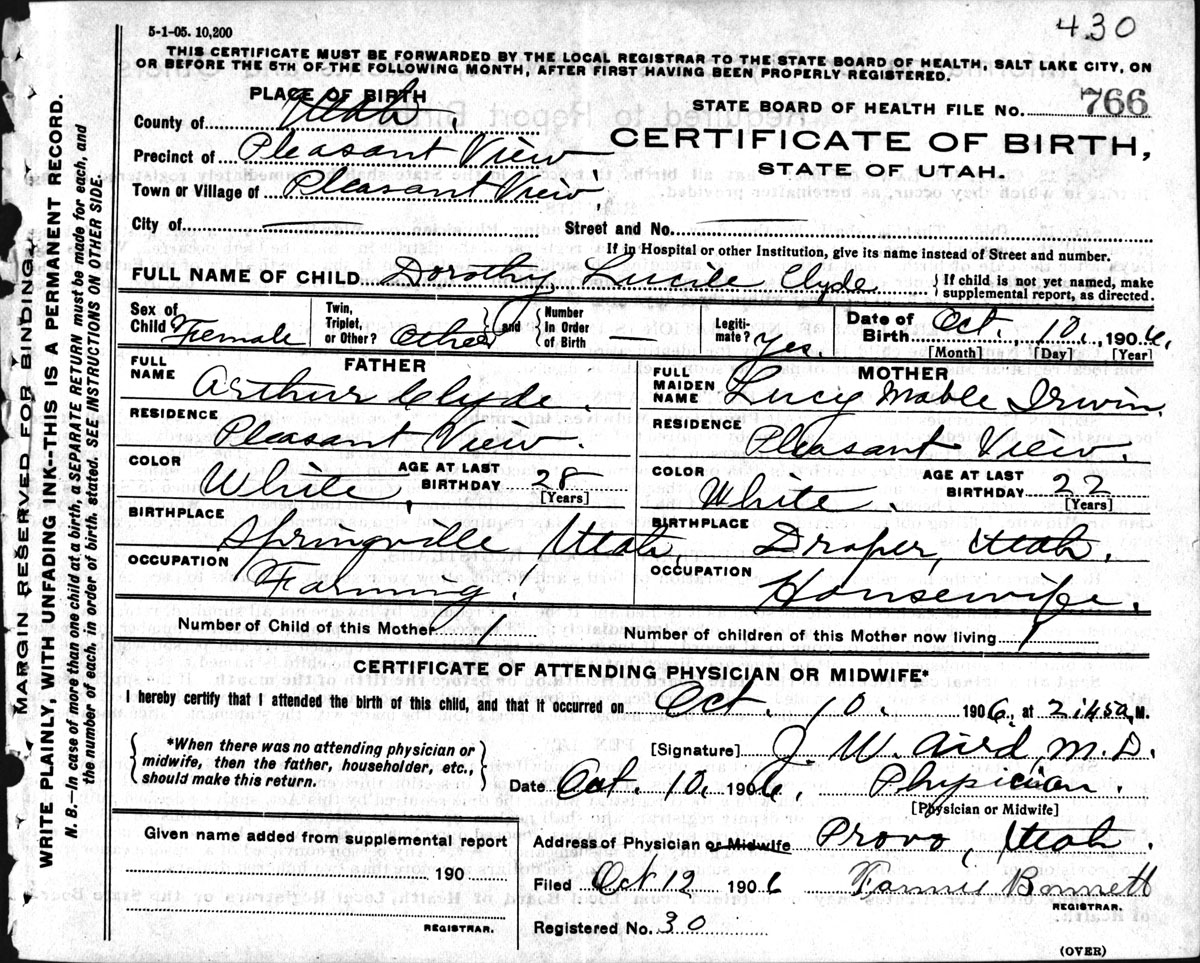 5-1-05. 10,200
430
THIS CERTIFICATE MUST BE FORWARDED BY THE LOCAL REGISTRAR TO THE STATE BOARD OF HEALTH, SALT LAKE CITY, ON
OR BEFORE THE 5TH OF THE FOLLOWING MONTH, AFTER FIRST HAVING BEEN PROPERLY REGISTERED.
PLACE OF BIRTH
STATE BOARD OF HEALTH FILE NO. 766
County of Utah.
CERTIFICATE OF BIRTH,
Precinct of Pleasant View
STATE OF UTAH.
Town or Village of Pleasant View
City of Street and No.
If in Hospital or other Institution, give its name instead of Street and number.
FULL NAME OF CHILD Dorothy Lucile Clyde { If child is not yet named, make supplemental report, as directed.
Sex of Child Female Twin, Triplet, or Other? Other and Number in Order of Birth — Legiti-mate? Yes. Date of Birth Oct. 10, 1906.
[Month] [Day] [Year]
FATHER MOTHER
FULL NAME Arthur Clyde. FULL MAIDEN NAME Lucy Mable Irwin.
RESIDENCE Pleasant View. RESIDENCE Pleasant View.
COLOR White. AGE AT LAST BIRTHDAY 28 [Years] COLOR White. AGE AT LAST BIRTHDAY 22 [Years]
BIRTHPLACE Springville Utah, BIRTHPLACE Draper, Utah.
OCCUPATION Farming. OCCUPATION Housewife.
Number of Child of this Mother 1 Number of children of this Mother now living 1
CERTIFICATE OF ATTENDING PHYSICIAN OR MIDWIFE*
I hereby certify that I attended the birth of this child, and that it occurred on Oct. 10. 1906, at 2:45a M.
{ *When there was no attending physician or midwife, then the father, householder, etc., should make this return. }
[Signature] J. W. Aird, M.D.
Date Oct. 10, 1906, Physician.
[Physician or Midwife]
Given name added from supplemental report
190
REGISTRAR.
Address of Physician or Midwife Provo, Utah.
Filed Oct 12 1906 Bonnett
REGISTRAR.
Registered No. 30
(OVER)
MARGIN RESERVED FOR BINDING.
WRITE PLAINLY, WITH UNFADING INK--THIS IS A PERMANENT RECORD.
N. B.—In case of more than one child at a birth, a SEPARATE RETURN must be made for each, and
the number of each, in order of birth, stated. SEE INSTRUCTIONS ON OTHER SIDE.